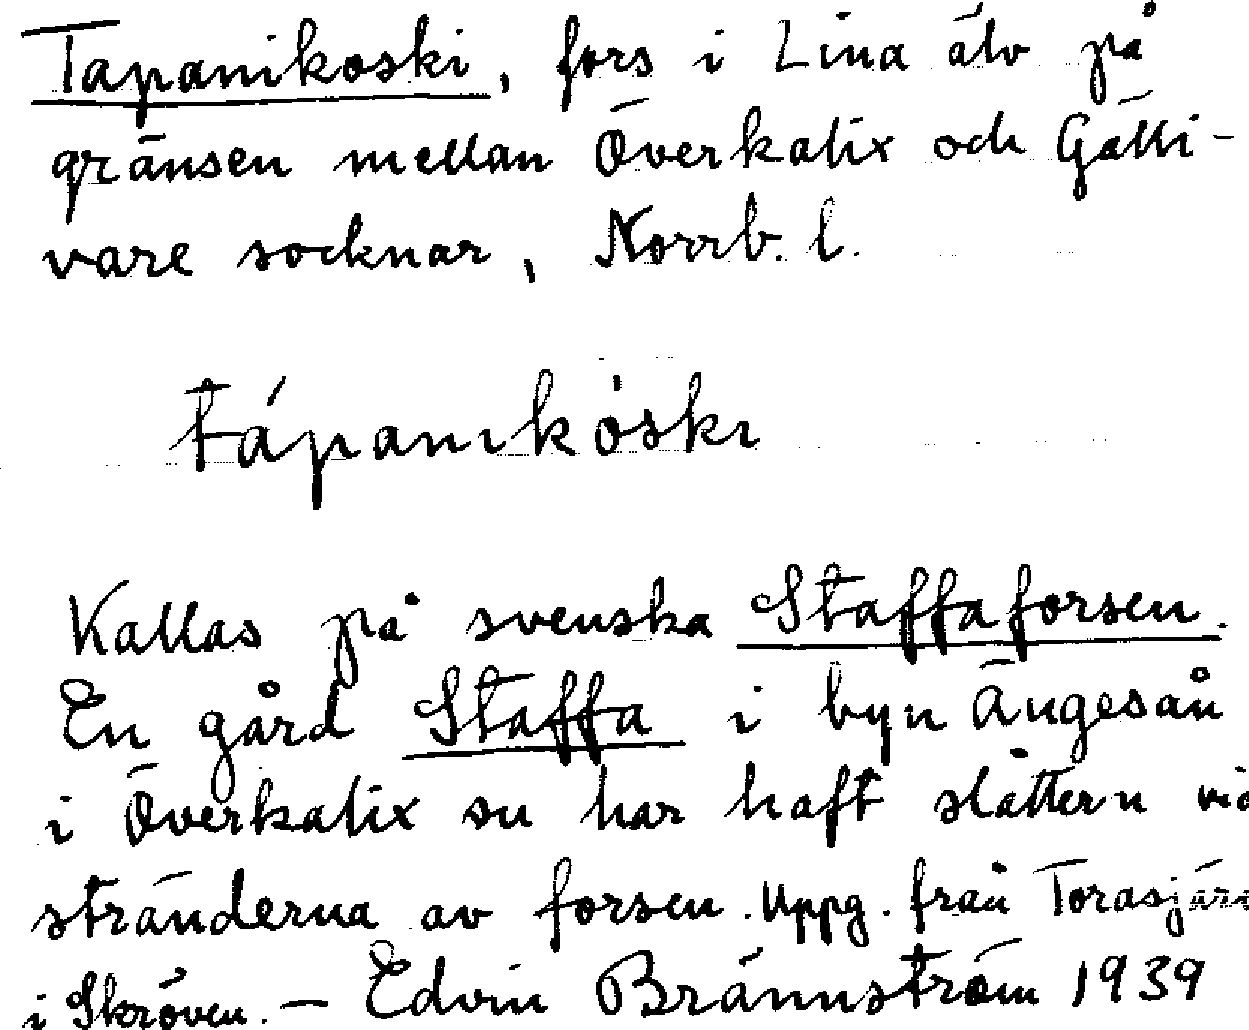 Tapanikoski, fors i Lina älv på
gränsen mellan Överkalix och Gälli-
vare socknar, Norrb. l.
tápanikòski
Kallas på svenska Staffaforsen.
En gård Staffa i byn Ängesån
i Överkalix sn har haft slåttern vid
stränderna av forsen. Uppg. från Torasjärv
i Skröven. – Edvin Brännström 1939